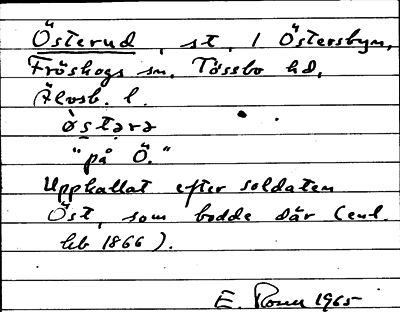 Österud, st, / Östersbyn,
Fröskogs sn, Tössbo hd,
Älvsb. l.
òstərə
"på Ö."
Uppkallat efter soldaten
Öst, som bodde där (enl.
hb 1866).
E. 1965